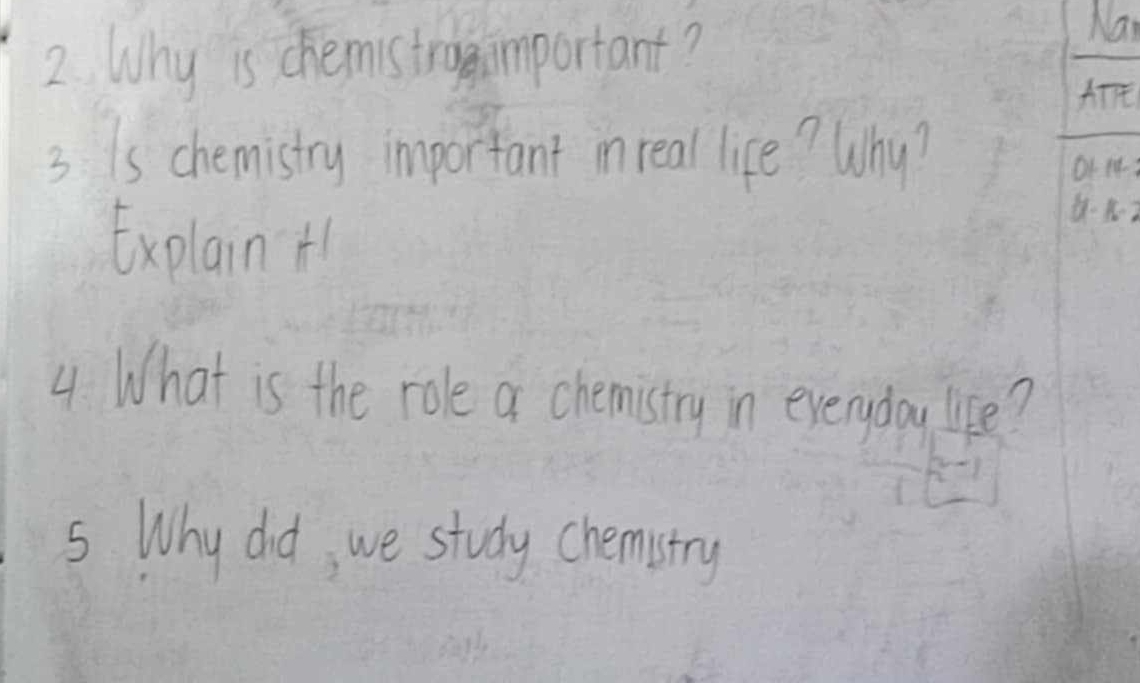 2. Why is chemistry important?
3. Is chemistry important in real life? Why?
Explain it!
4. What is the role of chemistry in everyday life?
5 Why did, we study chemistry
Nam
ATTE